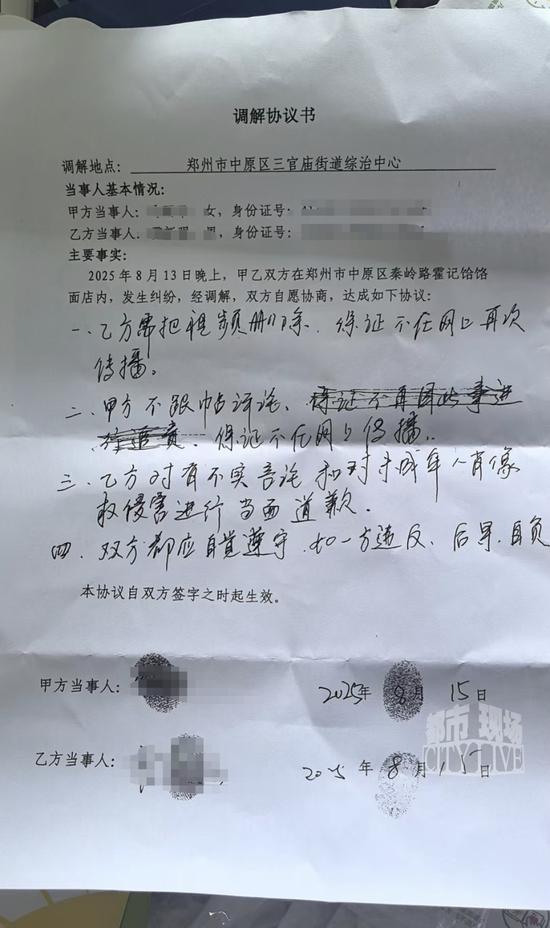 调解协议书
调解地点：郑州市中原区三官庙街道综治中心
当事人基本情况：
甲方当事人： 女，身份证号：
乙方当事人： 男，身份证号：
主要事实：
2025年8月13日晚上，甲乙双方在郑州市中原区秦岭路霍记饸饹
面店内，发生纠纷，经调解，双方自愿协商，达成如下协议：
一、乙方需把视频删除、保证不在网上再次
传播。
二、甲方不跟帖评论、保证不再因此事进
行追责、保证不在网上传播。
三、乙方对有不实言论和对未成年人肖像
权侵害进行当面道歉。
四、双方都应自觉遵守、如一方违反、后果自负
本协议自双方签字之时起生效。
甲方当事人： 2025年8月15日
乙方当事人： 2025年8月15日
都市现场
CITYLIVE